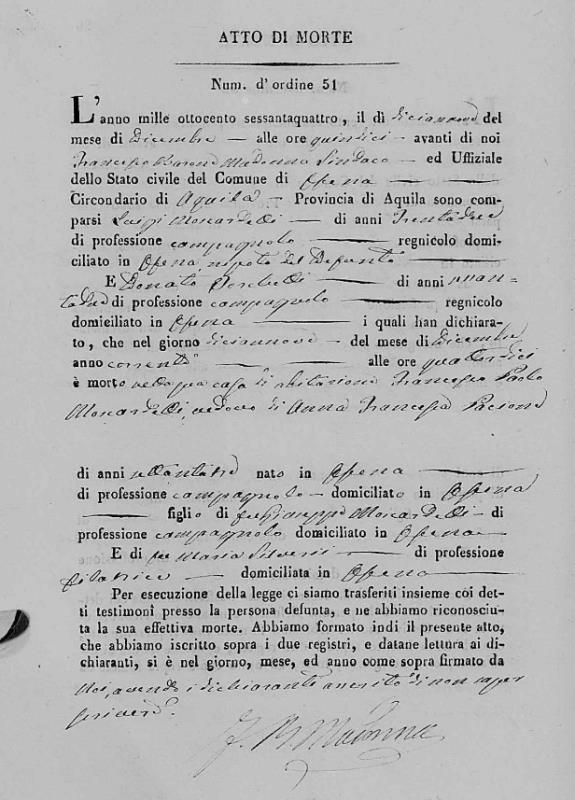 ATTO DI MORTE
Num. d'ordine 51
L'anno mille ottocento sessantaquattro, il dì diciannove del
mese di Dicembre — alle ore quindici — avanti di noi
Francesco Barone Madonna Sindaco — ed Uffiziale
dello Stato civile del Comune di Ofena —
Circondario di Aquila — Provincia di Aquila sono com-
parsi Luigi Moscardelli — di anni trentadue
di professione campagnolo — regnicolo domi-
ciliato in Ofena, nipote del Defunto —
E Donato — di anni quaran-
tadue di professione campagnolo — regnicolo
domiciliato in Ofena — i quali han dichiara-
to, che nel giorno diciannove — del mese di Dicembre
anno corrente — alle ore quattordici
è morto nella sua casa di abitazione Francesco Paolo
Moscardelli, vedovo di Anna Francesca Pacione
di anni ottantatre nato in Ofena —
di professione campagnolo — domiciliato in Ofena
— figlio di fu Giuseppe Moscardelli — di
professione campagnolo domiciliato in Ofena —
E di fu Maria Silveri — di professione
filatrice — domiciliata in Ofena —
Per esecuzione della legge ci siamo trasferiti insieme coi det-
ti testimonî presso la persona defunta, e ne abbiamo riconosciu-
ta la sua effettiva morte. Abbiamo formato indi il presente atto,
che abbiamo iscritto sopra i due registri, e datane lettura ai di-
chiaranti, si è nel giorno, mese, ed anno come sopra firmato da
Noi, avendo i dichiaranti asserito di non saper
scrivere.
F. B. Madonna